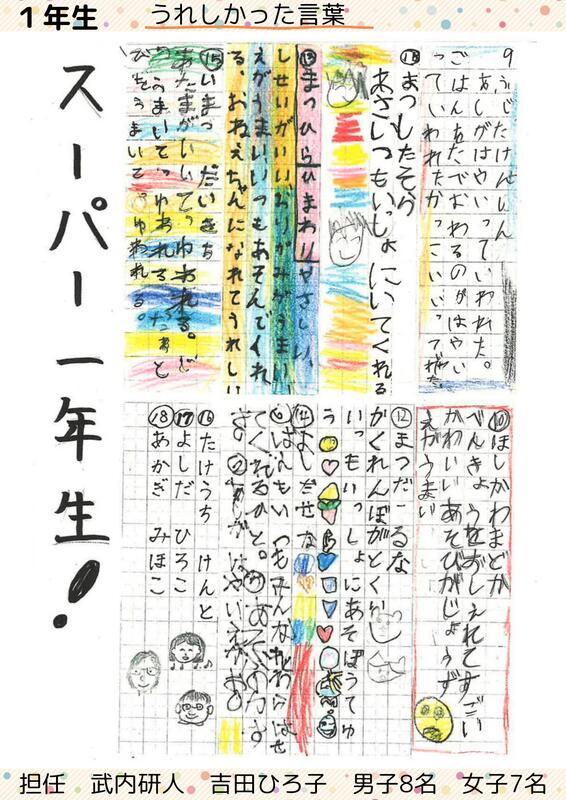 1年生
うれしかった言葉
スーパー一年生!
9 ふじたけんしん
あしがはやいっていわれた。
ごはんたべおわるのがはやい
っていわれたかっこいいって
⑪まつしたそら
あさいつもいっしょにいてくれる
⑬まつひらひまわりやさしい、
しせいがいいおりがみがうまい、
えがうまいいつもあそんでくれ
る、おねえちゃんになれてうれしい
⑮いまづ だいきち
あたまがいいてゆわれる。
うまいてゆわれる
うまいてゆわれる。
⑩ほしかわまどか
べんきょうをおしえれてすごい
かわいいあそびがじょうず
えがうまい
⑫まつだ るな
かくれんぼがとくい
いつもいっしょにあそぼうてゆ
う
⑭よしだせな
てくれるひと。
はやい
⑯たけうち けんと
⑰よしだ ひろこ
⑱あかぎ みほこ
担任 武内研人 吉田ひろ子 男子8名 女子7名